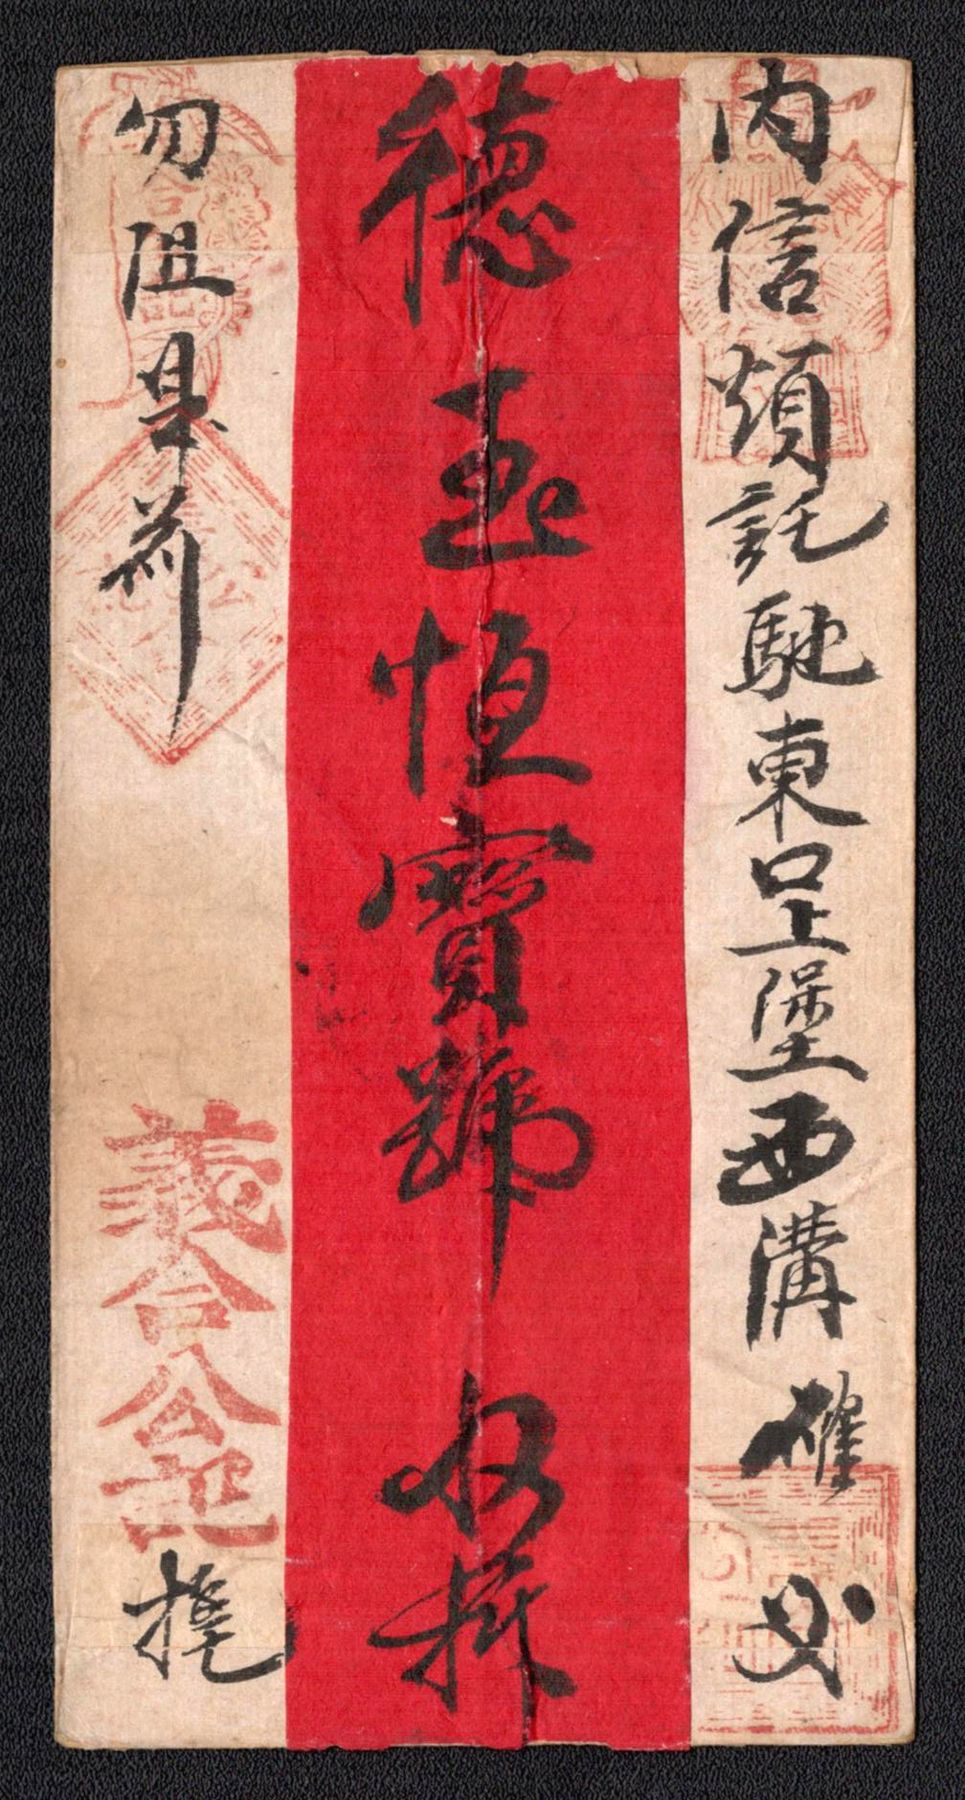 內信煩託馳東口上堡西溝確交
德玉恒寶號 收拆
勿阻是荷
義合公記